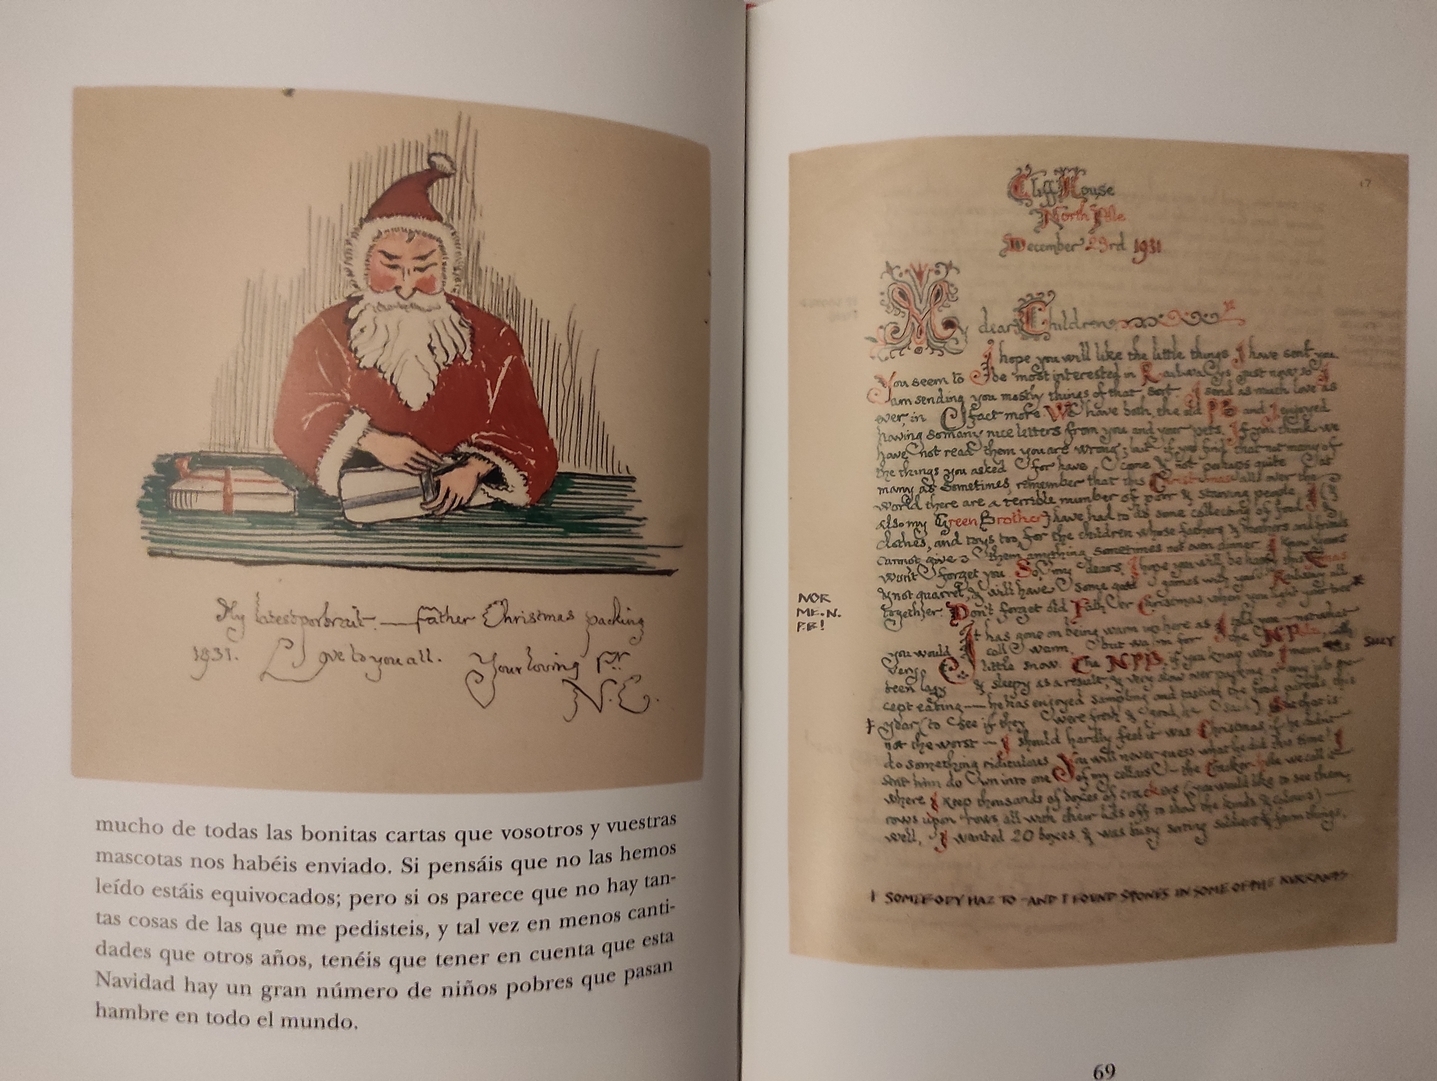 My latest portrait. — Father Christmas packing
1931. Love to you all. Your loving Fr.
N.C.
mucho de todas las bonitas cartas que vosotros y vuestras
mascotas nos habéis enviado. Si pensáis que no las hemos
leído estáis equivocados; pero si os parece que no hay tan-
tas cosas de las que me pedisteis, y tal vez en menos canti-
dades que otros años, tenéis que tener en cuenta que esta
Navidad hay un gran número de niños pobres que pasan
hambre en todo el mundo.
17
Cliff House
North Pole
December 23rd 1931
My dear Children
I hope you will like the little things I have sent you.
You seem to be most interested in Railways just now so I
am sending you mostly things of that sort. I send as much love as
ever, in fact more. We have both, the old PB and I enjoyed
having so many nice letters from you and your pets. If you think we
have not read them you are wrong; but if you find that not many of
the things you asked for have come & not perhaps quite as
many as sometimes remember that this Christmas all over the
world there are a terrible number of poor & starving people. I (&
also my Green Brother) have had to do some collecting of food &
clothes, and toys too, for the children whose fathers & mothers and friends
cannot give them anything, sometimes not even dinner. I know yours
won't forget you. So, my dears, I hope you will be happy this Xmas
& not quarrel, & will have some good games with your Railway all
together. Don't forget old Father Christmas when you light your tree
NOR
ME. N.
P.B!
It has gone on being warm up here as I told you — not what
you would call warm, but warm for the N Pole, with
SILLY
very little snow. The NPB, if you know who I mean has
been lazy & sleepy as a result, & very slow over packing, or any job ex-
cept eating — he has enjoyed sampling and tasting the food parcels this
year (to see if they were fresh & good, he said). But that is
not the worst — I should hardly feel it was Christmas if he didn't
do something ridiculous. You will never guess what he did this time! I
sent him down into one of my cellars — the Cracker-hole we call it
where I keep thousands of boxes of crackers (you would like to see them,
rows upon rows all with their lids off to show the kinds & colours) —
well, I wanted 20 boxes, & was busy sorting soldiers & farm things,
SOMEBODY HAZ TO — AND I FOUND STONES IN SOME OF THE KURRANTS
69